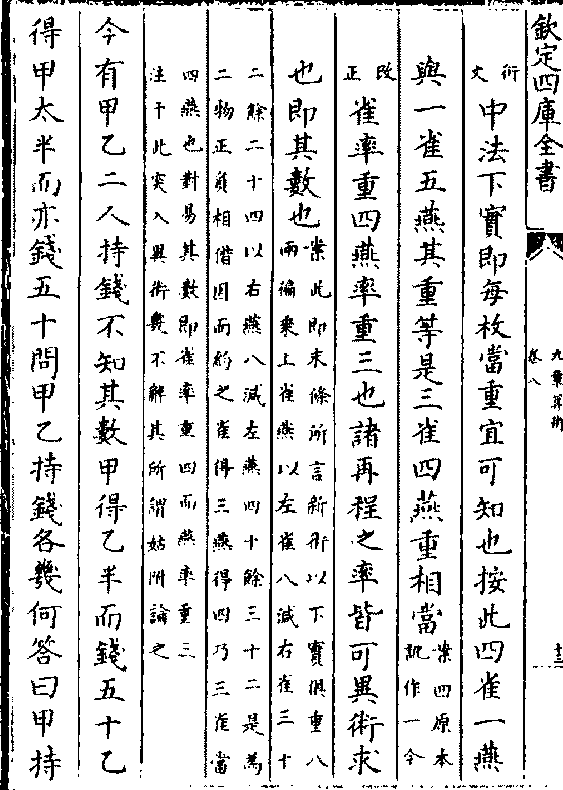 欽定四庫全書
九章算術
卷八
十三
術文中法下實即每枚當重宜可知也按此四雀一燕
與一雀五燕其重等是三雀四燕重相當案四原本訛作一今
改正雀率重四燕率重三也諸再程之率皆可異術求
也即其數也案此即末條所言新術以下實俱重八兩徧乗上雀燕以左雀八減右雀三十
二餘二十四以右燕八減左燕四十餘三十二是為二物正負相借因而約之雀得三燕得四乃三雀當
四燕也對易其數即雀率重四而燕率重三注于此突入異術幾不解其所謂姑附論之
今有甲乙二人持錢不知其數甲得乙半而錢五十乙
得甲太半而亦錢五十問甲乙持錢各幾何答曰甲持